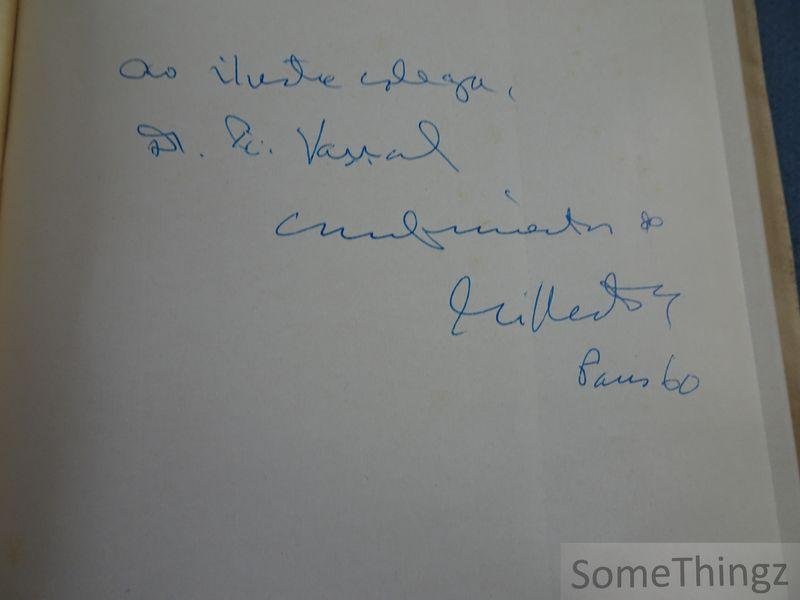 Ao ilustre colega,
Dr. P. Vassal
cumprimentos do
Paris 60
SomeThingz